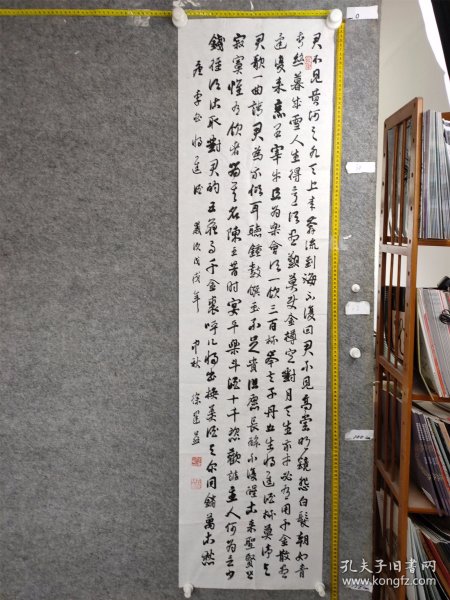 君不見黃河之水天上來奔流到海不復回君不見高堂明鏡悲白髮朝如青
絲暮成雪人生得意須盡歡莫使金樽空對月天生我才必有用千金散盡
還復來烹羊宰牛且為樂會須一飲三百杯岑夫子丹丘生將進酒杯莫停與
君歌一曲請君為我傾耳聽鐘鼓饌玉不足貴但願長醉不復醒古來聖賢皆
寂寞惟有飲者留其名陳王昔時宴平樂斗酒十千恣歡謔主人何為言少
錢徑須沽取對君酌五花馬千金裘呼兒將出換美酒與爾同銷萬古愁
唐 李白 將進酒 歲次戊戌年 中秋 徐
孔夫子旧书网
www.kongfz.com